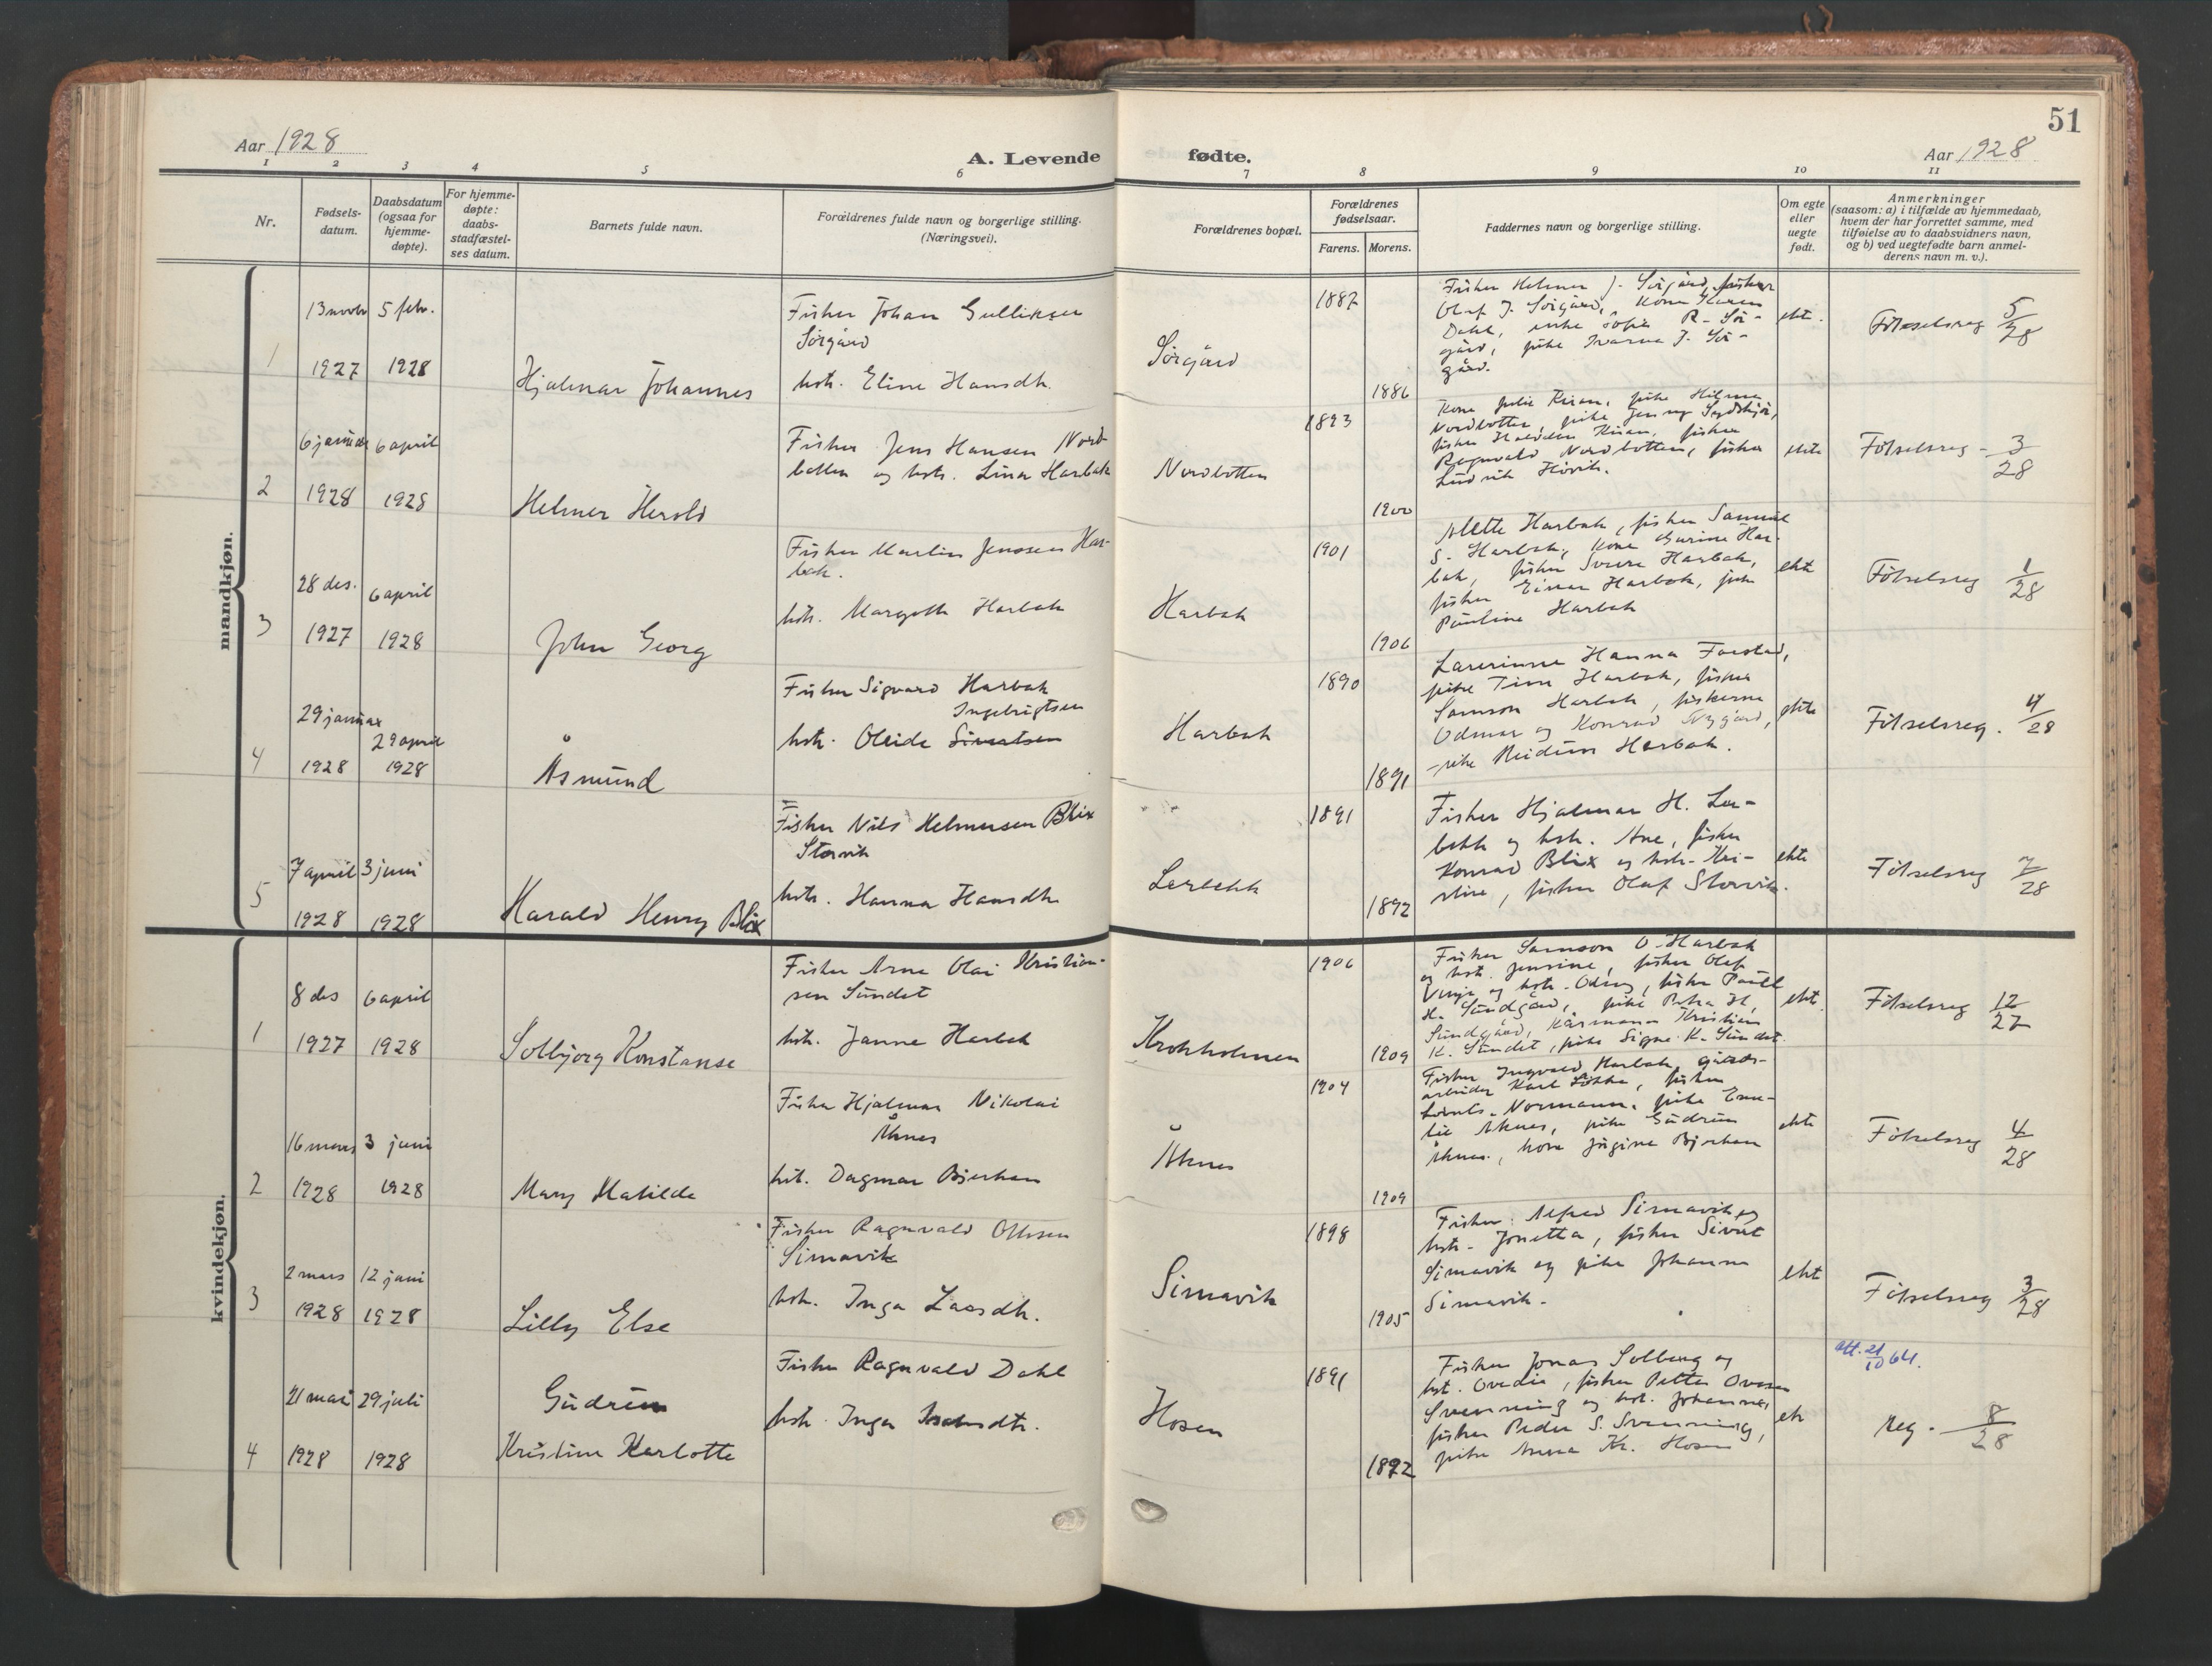 51
Aar 1928
A. Levende
fødte.
Aar 1928
1 2 3 4 5 6 7 8 9 10 11
Nr.
Fødsels-
datum.
Daabsdatum
(ogsaa for
hjemme-
døpte).
For hjemme-
døpte:
daabs-
stadfæstel-
ses datum.
Barnets fulde navn.
Forældrenes fulde navn og borgerlige stilling.
(Næringsvei).
Forældrenes bopæl.
Forældrenes
fødselsaar.
Farens. Morens.
Faddernes navn og borgerlige stilling.
Om egte
eller
uegte
født.
Anmerkninger
(saasom: a) i tilfælde av hjemmedaab,
hvem der har forrettet samme, med
tilføielse av to daabsvidners navn,
og b) ved uegtefødte barn anmel-
derens navn m. v.).
mandkjøn.
1
13 novbr
1927
5 febr.
1928
Hjalmar Johannes
Fisker Johan Gulliksen
Sörgård
hstr. Eline Hansdtr.
Sörgård
1887
1886
Fisker Helmer J. Sörgård, fisker
Olaf J. Sörgård, kone Karen
Dahl, enke Sofie R. Sör-
gård, pike Ivarna J. Sör-
gård.
ekt.
Fötselsreg 5/28
2
6 januar
1928
6 april
1928
Helmer Herold
Fisker Jens Hansen Nord-
botten og hstr. Lina Harbak
Nordbotten
1893
1900
Kone Julie Kiran, pike Helma
Nordbotten, pike Jenny Sydskjör,
fisker Halvdan Kiran, fisker
Ragnvald Nordbotten, fisker
Ludvik Hövik.
ekte
Fötselsreg - 3/28
3
28 des.
1927
6 april
1928
John Georg
Fisker Martin Jenssen Har-
bak.
hstr. Margoth Harbak
Harbak
1901
1906
Alette Harbak, fisker Samuel
S. Harbak, kone Gurine Har-
bak, fisker Sverre Harbak,
fisker Einar Harbak, pike
Pauline Harbak
ekte
Fötselsreg 1/28
4
29 januar
1928
29 april
1928
Åsmund
Fisker Sigvard Harbak
Ingebrigtsen
hstr. Oleide Sivertsen
Harbak
1890
1891
Lærerinne Hanna Faerstad,
pike Tine Harbak, fisker
Samson Harbak, fiskerne
Odmar og Konrad Nygård,
pike Reidun Harbak.
ekte
Fötselsreg. 4/28
5
7 april
1928
3 juni
1928
Harald Henry Blix
Fisker Nils Helmersen Blix
Storvik
hstr. Hanna Hansdtr
Lerbekk
1891
1892
Fisker Hjalmar H. Ler-
bekk og hstr. Ane, fisker
Konrad Blix og hstr. Kri-
stine, fisker Olaf Storvik.
ekte
Fötselsreg 7/28
kvindekjøn.
1
8 des
1927
6 april
1928
Solbjörg Konstanse
Fisker Arne Olai Kristian-
sen Sundet
hstr. Janne Harbak
Krokholmen
1906
1909
Fisker Samson O. Harbak
og hstr. Jensine, fisker Olef
Vinje og hstr. Odny, fisker Paull
H. Sundgård, pike Petra H.
Sundgård, Kårmann Kristian
K. Sundet, pike Signe K. Sundet.
ekte.
Fötselsreg 12/27
2
16 mars
1928
3 juni
1928
Mary Matilde
Fisker Hjalmar Nikolai
Åknes
hst. Dagmar Bjerkan
Åknes
1904
1909
Fisker Ingvald Harbak, gårds-
arbeider Karl Løkke, fisker
Lornts Normann, pike Emi-
lie Aknes, pike Gudrun
Åknes, kone Jögine Bjerkan
ekte
Fötselsreg 4/28
3
2 mars
1928
12 juni
1928
Lilly Else
Fisker Ragnvald Ottesen
Simavik
hstr. Inga Larsdtr.
Simavik
1898
1905
Fisker Alfred Simavik og
hstr. Jonetta, fisker Sivert
Simavik og pike Johanna
Simavik.
ekt
Fötselsreg 3/28
4
21 mai
1928
29 juli
1928
Gudrun
Kristine Karlotte
Fisker Ragnvald Dahl
hstr. Inga
Hosen
1891
1892
Fisker Jonas Solberg og
hst. Ovedie, fisker Petter Ovesen
Svenning og hst. Johanna,
fisker Peder S. Svenning,
pike Anna Kr. Hosen
ek
att. 21/10 64.
reg. 8/28